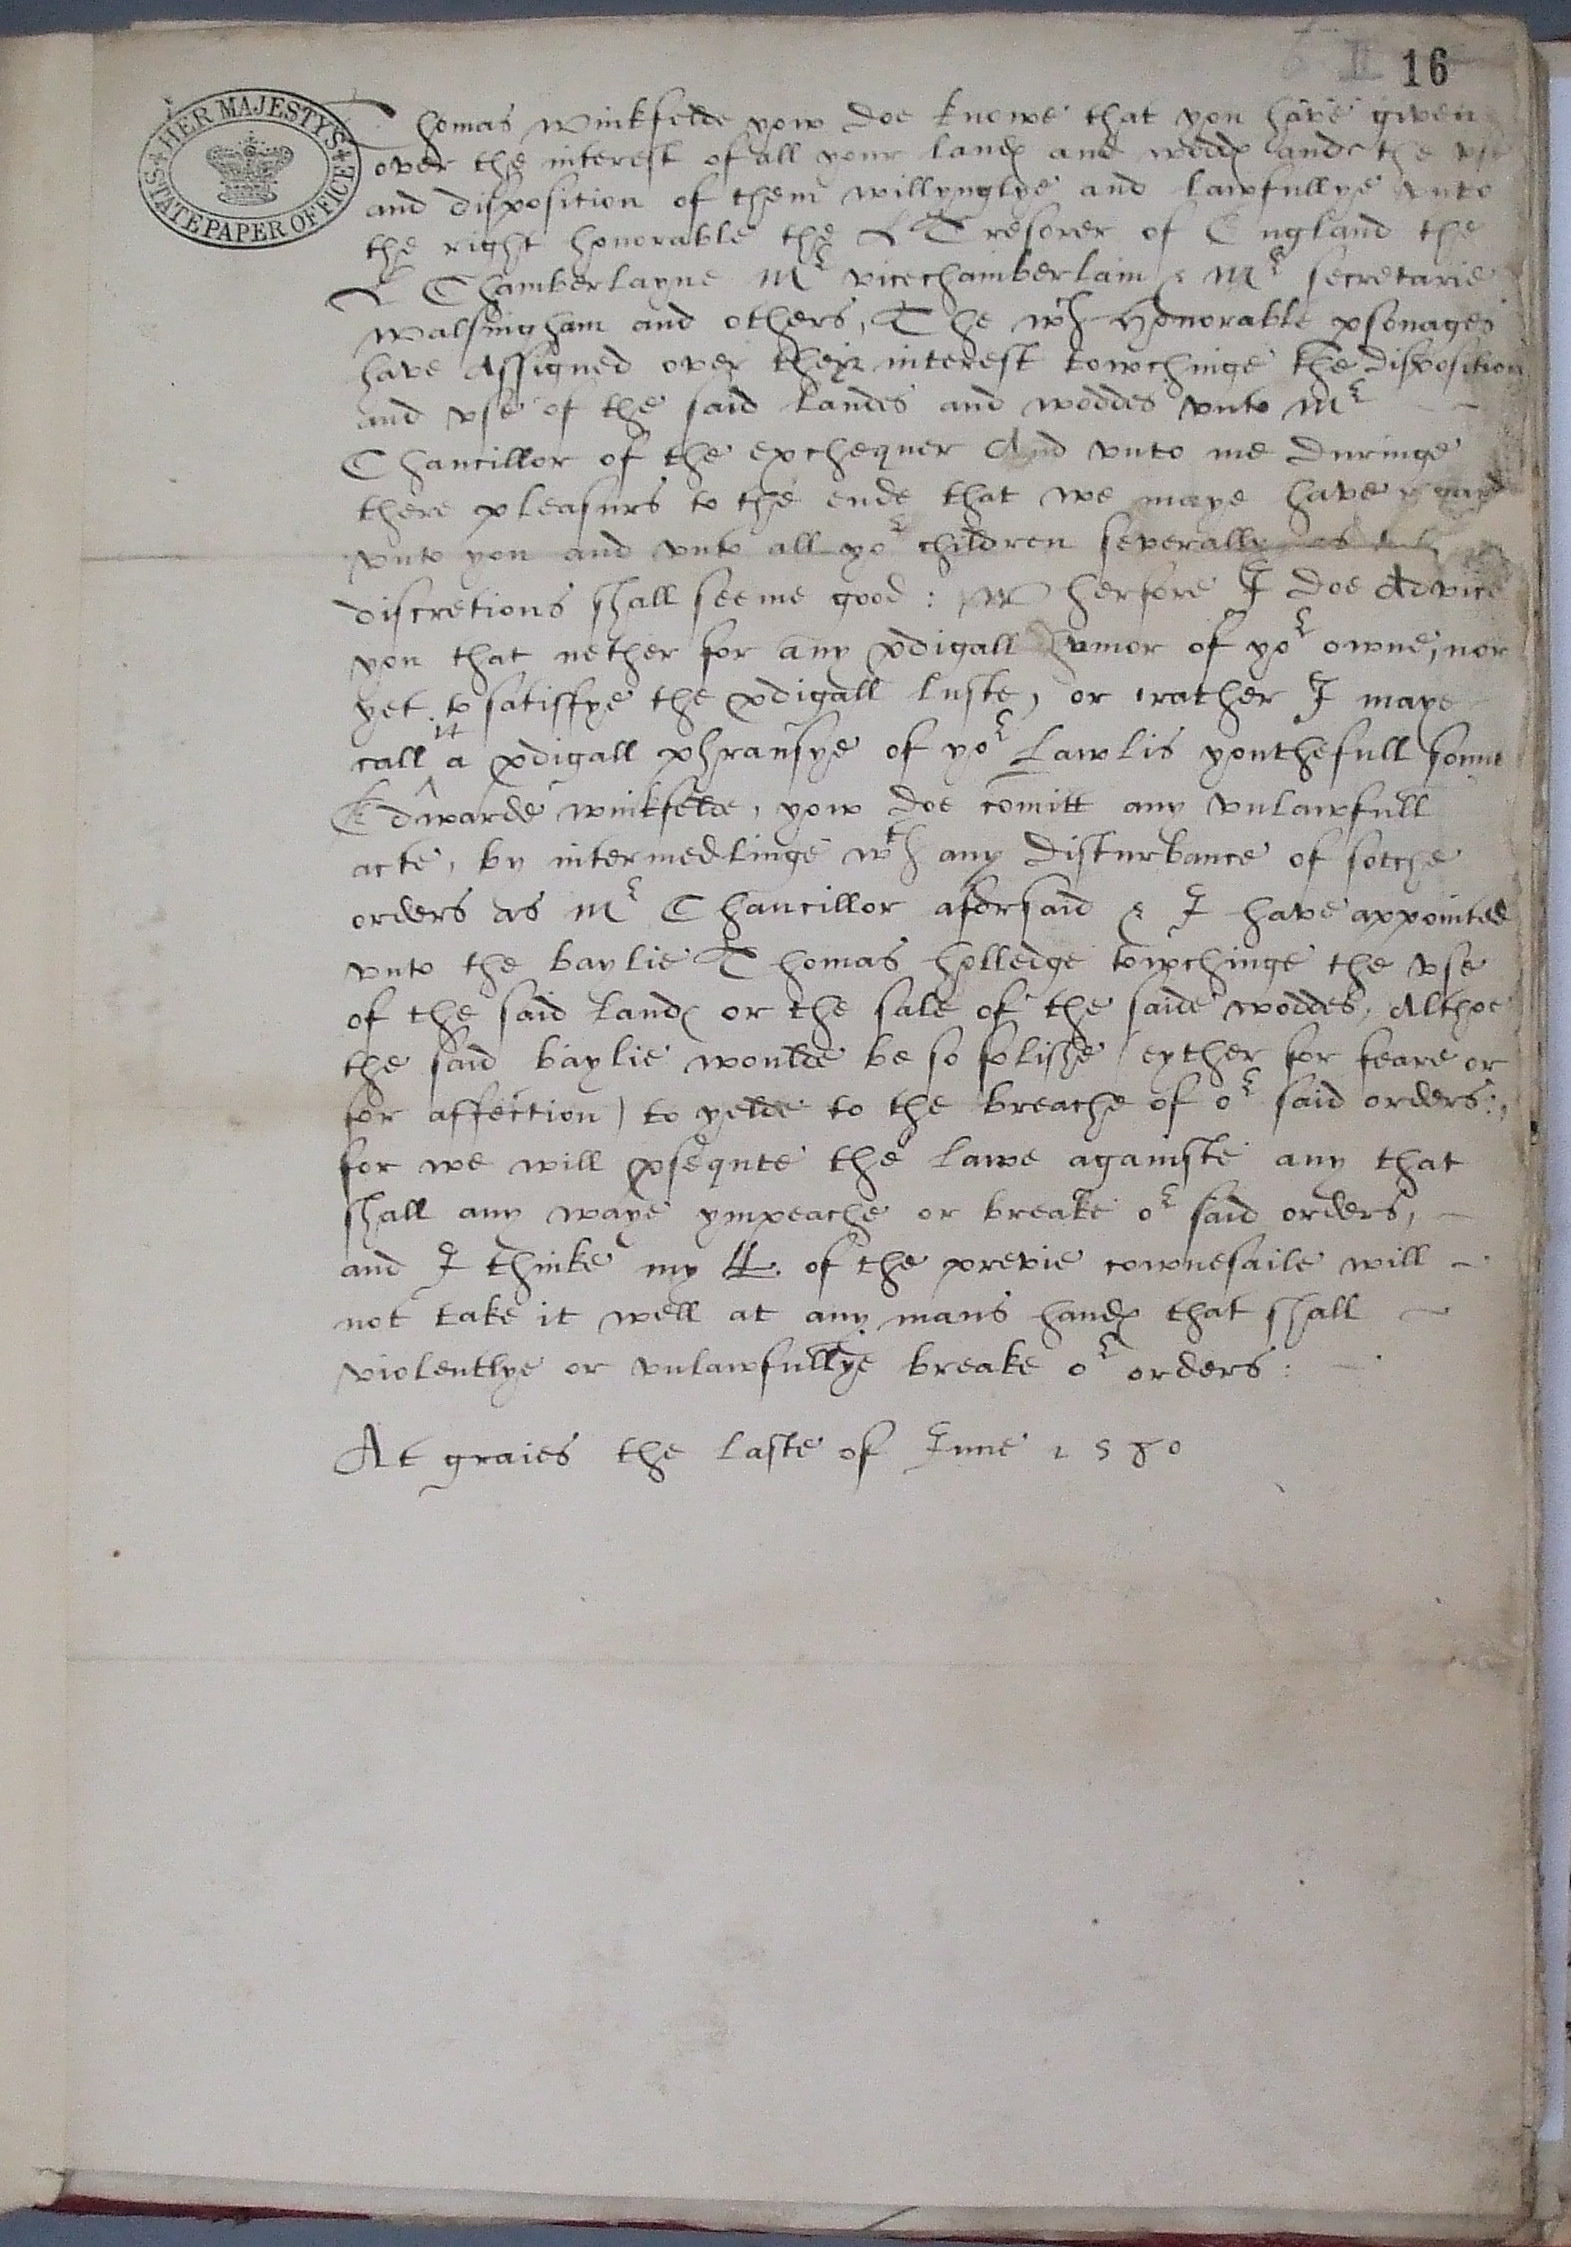 16
HER MAJESTYS
STATE PAPER OFFICE
Thomas Winkfelde yow doe knowe that you have given
over the interest of all your landꝭ and woddꝭ and the vse
and disposition of them willynglye and lawfullye vnto
the right honorable the L Tresorer of England the
L Chamberlayne Mr vicechamberlain & Mr secretarie
Walsingham and others, The wch Honorable ꝑsonages
have Assigned over theyr interest towchinge the disposition
and vse of the said landes and woddes vnto Mr
Chancillor of the exchequer And vnto me duringe
there pleasurs to the ende that we maye have
vnto you and vnto all yor children severally as
discretions shall seeme good: Wherfore I doe Advice
you that nether for any ꝓdigall humor of yor owne, nor
yet to satisfye the ꝓdigall luste, or rather I maye
call it a ꝓdigall phransye of yor Lawlis youthefull sonne
Edwarde Winkfelde, yow doe comitt any vnlawfull
acte, by intermedlinge wth any disturbance of sotche
orders as Mr Chancillor aforsaid & I have appointed
vnto the baylie Thomas Holledge towchinge the vse
of the said landꝭ or the sale of the saide woddes, Althoe
the said baylie woulde be so folishe (eyther for feare or
for affection) to yelde to the breache of or said orders:,
for we will ꝓsequte the lawe againste any that
shall any waye ympeache or breake or said orders,
and I thinke my LL. of the previe cownesaile will
not take it well at any mans handꝭ that shall
violentlye or vnlawfullye breake or orders:
At graies the laste of June 1580